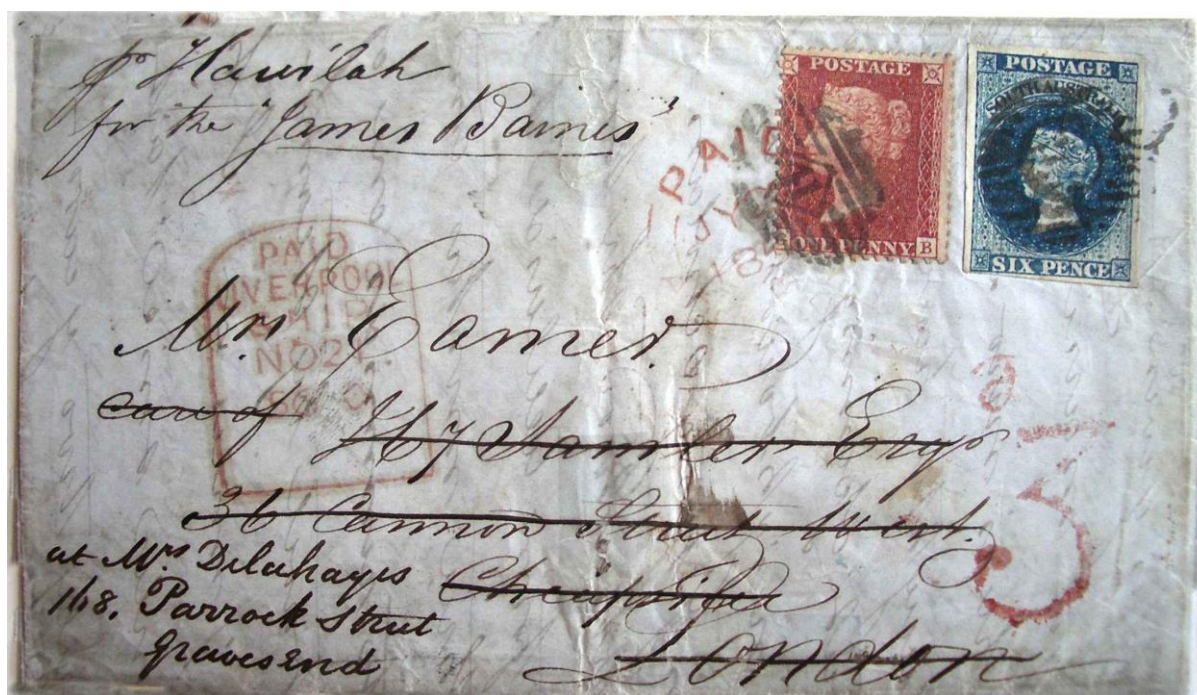 p Havilah
for the "James Baines"
POSTAGE
ONE PENNY
B
POSTAGE
SOUTH AUSTRALIA
SIX PENCE
PAID
JY
185
PAID
LIVERPOOL
SHIP
NO 2
Mrs Eamer
care of Hy Sambler Esqr
36 Cannon Street West.
Cheapside
London
at Mrs. Delahayes
168, Parrock Street
Gravesend
3